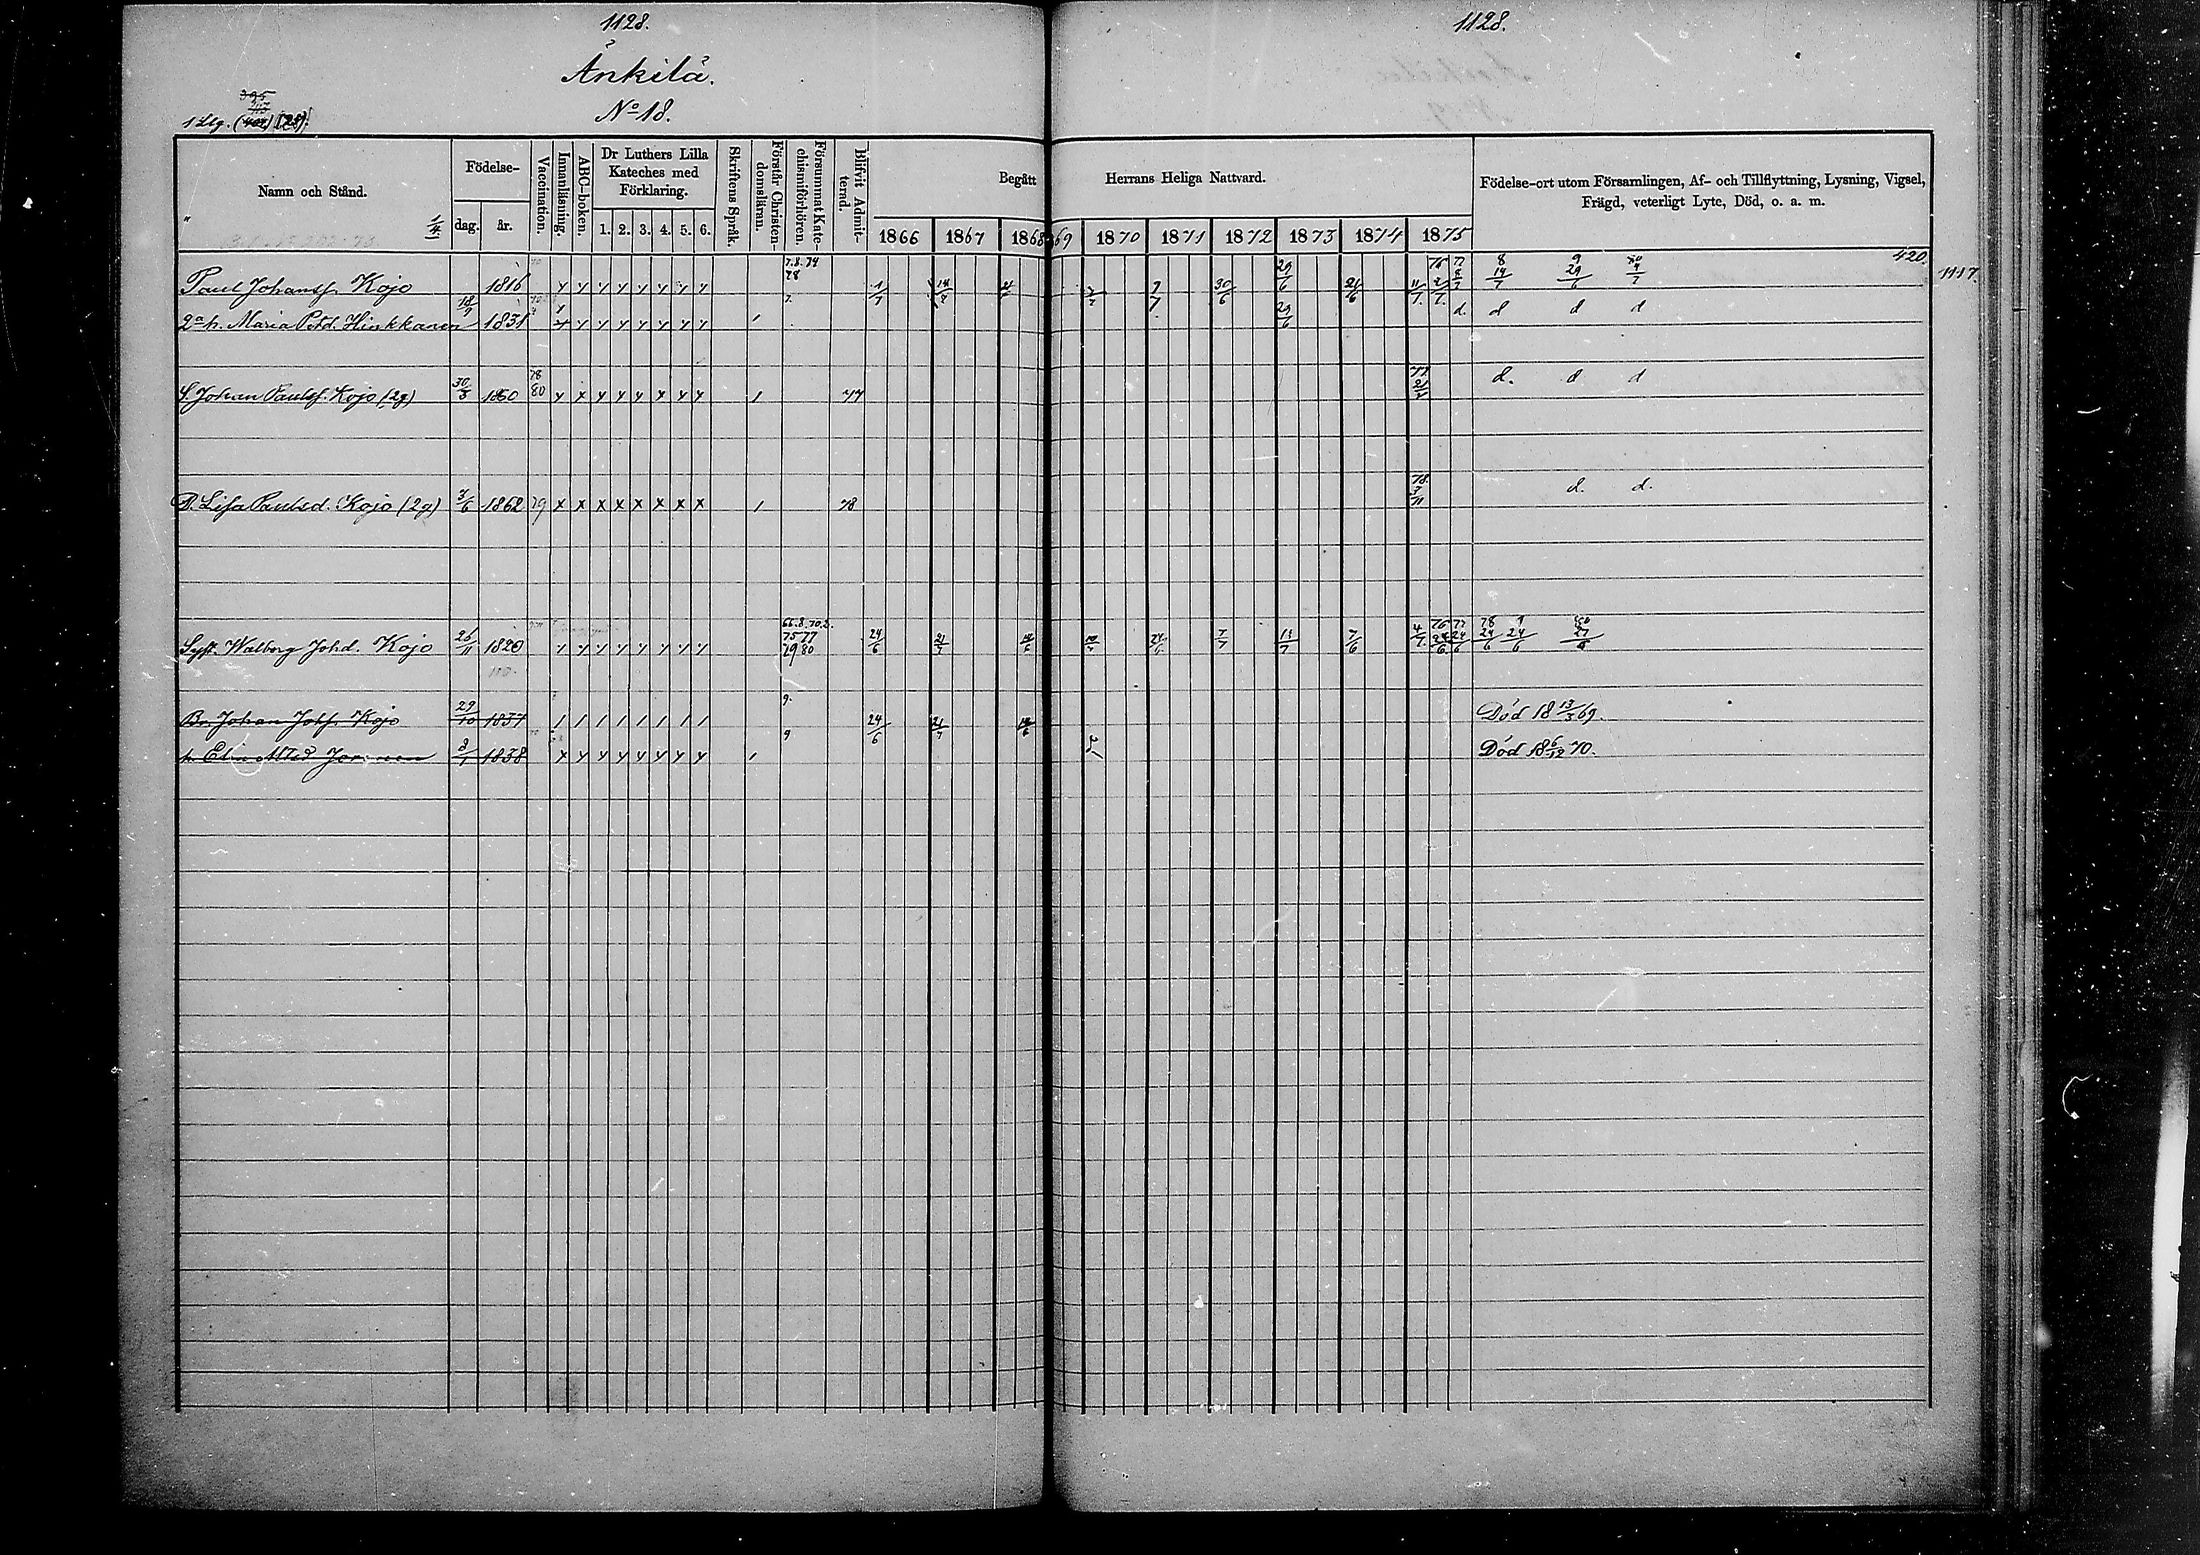 1128.
1128.
Änkilä.
No 18.
395
1 Llg.
Namn och Stånd.
Födelse-
dag.
år.
Vaccination.
Innanläsning.
ABC-boken.
Dr Luthers Lilla
Kateches med
Förklaring.
1. 2. 3. 4. 5. 6.
Skriftens Språk.
Förstår Christen-
domsläran.
Försummat Kate-
chismiförhören.
Blifvit Admit-
terad.
Begått Herrans Heliga Nattvard.
1866 1867 1868 69 1870 1871 1872 1873 1874 1875
Födelse-ort utom Församlingen, Af- och Tillflyttning, Lysning, Vigsel,
Frägd, veterligt Lyte, Död, o. a. m.
420.
1117.
7.8.74 76 77 8 9 80
78 29/6 19/7 29/6
Paul Johansf. Kojo 1816 x x x x x x x x 1/7 14/7 7/7 30/6 21/6
2a h. Maria Petd. Hinkkanen 18/9 1831 x x x x x x x x 29/6 d. d d d
78 77 d. d d
S. Johan Paulsf. Kojo (2g) 30/3 1860 80 x x x x x x x x 1 77
78 d. d.
D. Lisa Paulsd. Kojo (2g) 3/6 1862 79 x x x x x x x x 1 78 3/11
66.8.70.2.
75 77
79 80
Syst. Walborg Johd. Kojo 26/11 1820 x x x x x x x x 24/6 21/7 24/6 7/7 13/7 7/6 4/7 24/6 24/6 24/6 24/6
9.
Br. Johan Johf. Kojo 29/10 1837 1 1 1 1 1 1 1 1 24/6 21/7 Död 18 13/3 69.
9
h. Elin 8/1 1838 x x x x x x x x 1 Död 18 6/12 70.